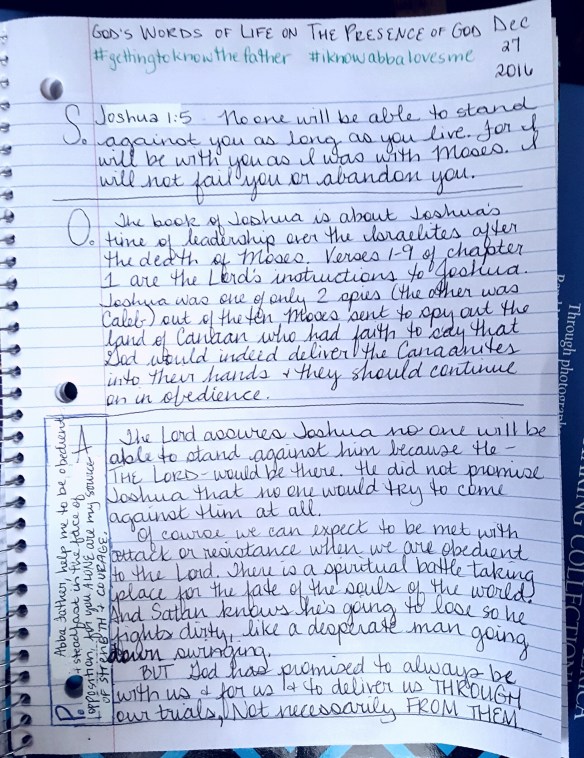 GOD'S WORDS OF LIFE ON THE PRESENCE OF GOD Dec
27
2016
#gettingtoknowthefather #iknowabbalovesme
S. Joshua 1:5 No one will be able to stand
against you as long as you live. For I
will be with you as I was with Moses. I
will not fail you or abandon you.
O. The book of Joshua is about Joshua's
time of leadership over the Israelites after
the death of Moses. Verses 1-9 of chapter
1 are the Lord's instructions to Joshua.
Joshua was one of only 2 spies (the other was
Caleb) out of the ten Moses sent to spy out the
land of Canaan who had faith to say that
God would indeed deliver the Canaanites
into their hands & they should continue
on in obedience.
A
The Lord assures Joshua no one will be
able to stand against him because He -
THE LORD - would be there. He did not promise
Joshua that no one would TRY to come
against Him at all.
Of course we can expect to be met with
attack or resistance when we are obedient
to the Lord. There is a spiritual battle taking
place for the fate of the souls of the world.
And Satan knows he's going to lose so he
fights dirty, like a desperate man going
down swinging.
BUT God has promised to always be
with us & for us & to deliver us THROUGH
our trials, Not necessarily FROM THEM.
P. Abba Father, help me to be obedient
& steadfast in the face of
opposition. for you ALONE are my source
OF STRENGTH & COURAGE.
Through photograph
COLLECTION